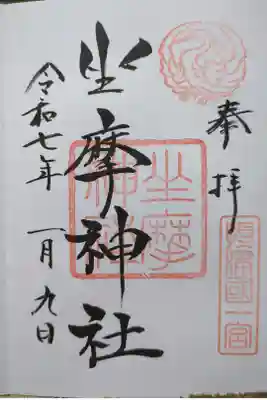 奉拝
摂津國一宮
坐摩神社
坐摩神社
令和七年一月九日